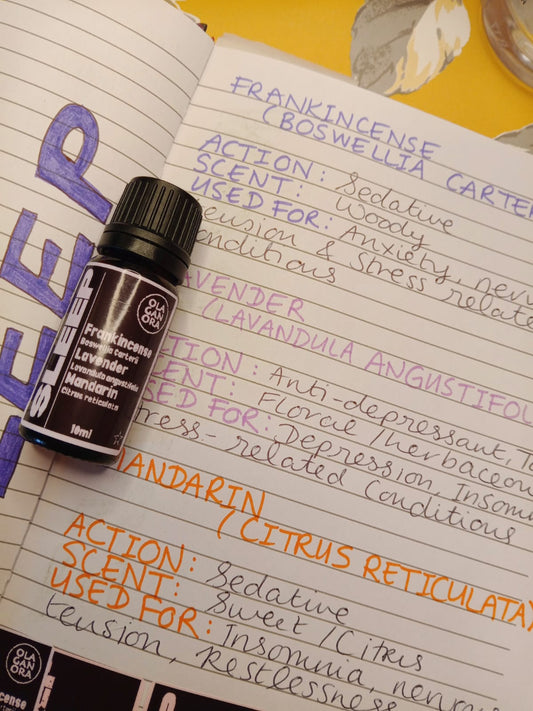 FRANKINCENSE
(BOSWELLIA CARTER
ACTION: Sedative
SCENT: Woody
USED FOR: Anxiety, nerv
tension & stress relate
conditions
LAVENDER
(LAVANDULA ANGUSTIFOL
ACTION: Anti-depressant, To
SCENT: Floral / herbaceou
USED FOR: Depression, Insom
stress-related conditions
MANDARIN
(CITRUS RETICULATA)
ACTION: Sedative
SCENT: Sweet / Citrus
USED FOR: Insomnia, nervous
tension, restlessness
EEP
SLEEP
OLA
GAN
ORA
Frankincense
Boswellia Carterii
Lavender
Lavandula angustifolia
Mandarin
Citrus reticulata
10ml
OLA
GAN
ORA